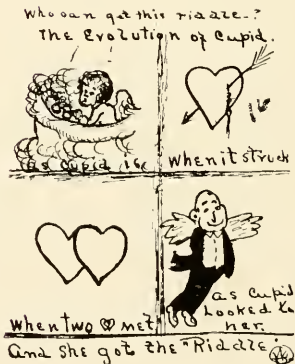 Who can get this riddle-?
The Evolution of Cupid.
as Cupid is
When it struck
When two met
as Cupid
Looked to
her.
and she got the "Riddle"